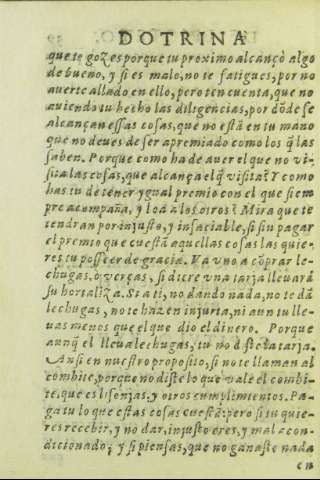 DOTRINA
que te gozes porque tu proximo alcançò algo
de bueno, y si es malo, no te fatigues, por no
auerte allado en ello, pero ten cuenta, que no
auiendo tu hecho las diligencias, por dõde se
alcançan essas cosas, que no estã en tu mano
que no deues de ser apremiado como los q̃ las
saben. Porque como ha de auer el que no vi-
sita las cosas, que alcança el q̃ visita? Y como
has tu de tener ygual premio con el que siem
pre acompaña, y loa à los otros? Mira que te
tendran por injusto, y insaciable, si sin pagar
el premio que cuestã aquellas cosas las quie-
res tu posseer de gracia. Va vno a cõprar le-
chugas, ò verças, si dicre vna tarja lleuarà
su hortaliza. Si a ti, no dando nada, no te dã
lechugas, no te hazen injuria, ni aun tu lle-
uas menos que el que dio el dinero. Porque
aunq̃ el lleua lechugas, tu no diste la tarja.
Ansi en nuestro proposito, si no te llaman al
combite, porque no diste lo que vale el combi-
te, que es lisonjas, y otros cumplimientos. Pa-
ga tu lo que estas cosas cuestã: pero si tu quie-
res recebir, y no dar, injusto eres, y mal acon-
dicionado; y si piensas, que no ganaste nada
en